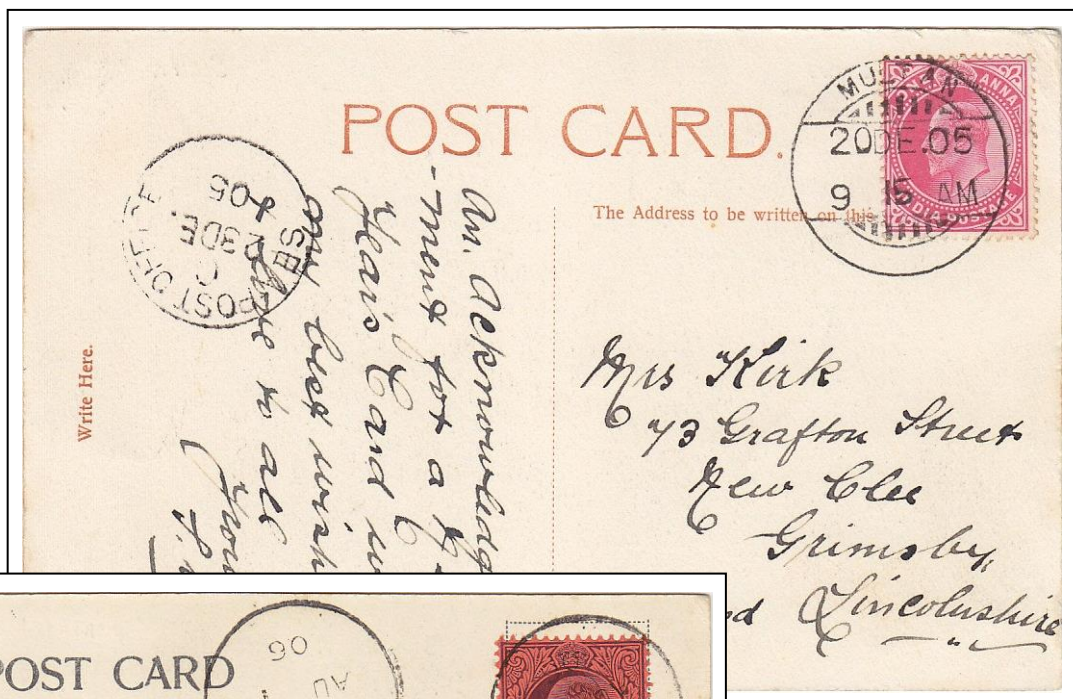 POST CARD.
The Address to be written on this
Write Here.
MULTAN
20 DE.05
9 15 AM
ANNA
POST OFFICE
C
23 DE.
05
An. Acknowledg
-ment for a
Years Card
my best wish
to all
Mrs Kirk
73 Grafton Street
New Clee
Grimsby,
Lincolnshire
POST CARD
AU
06